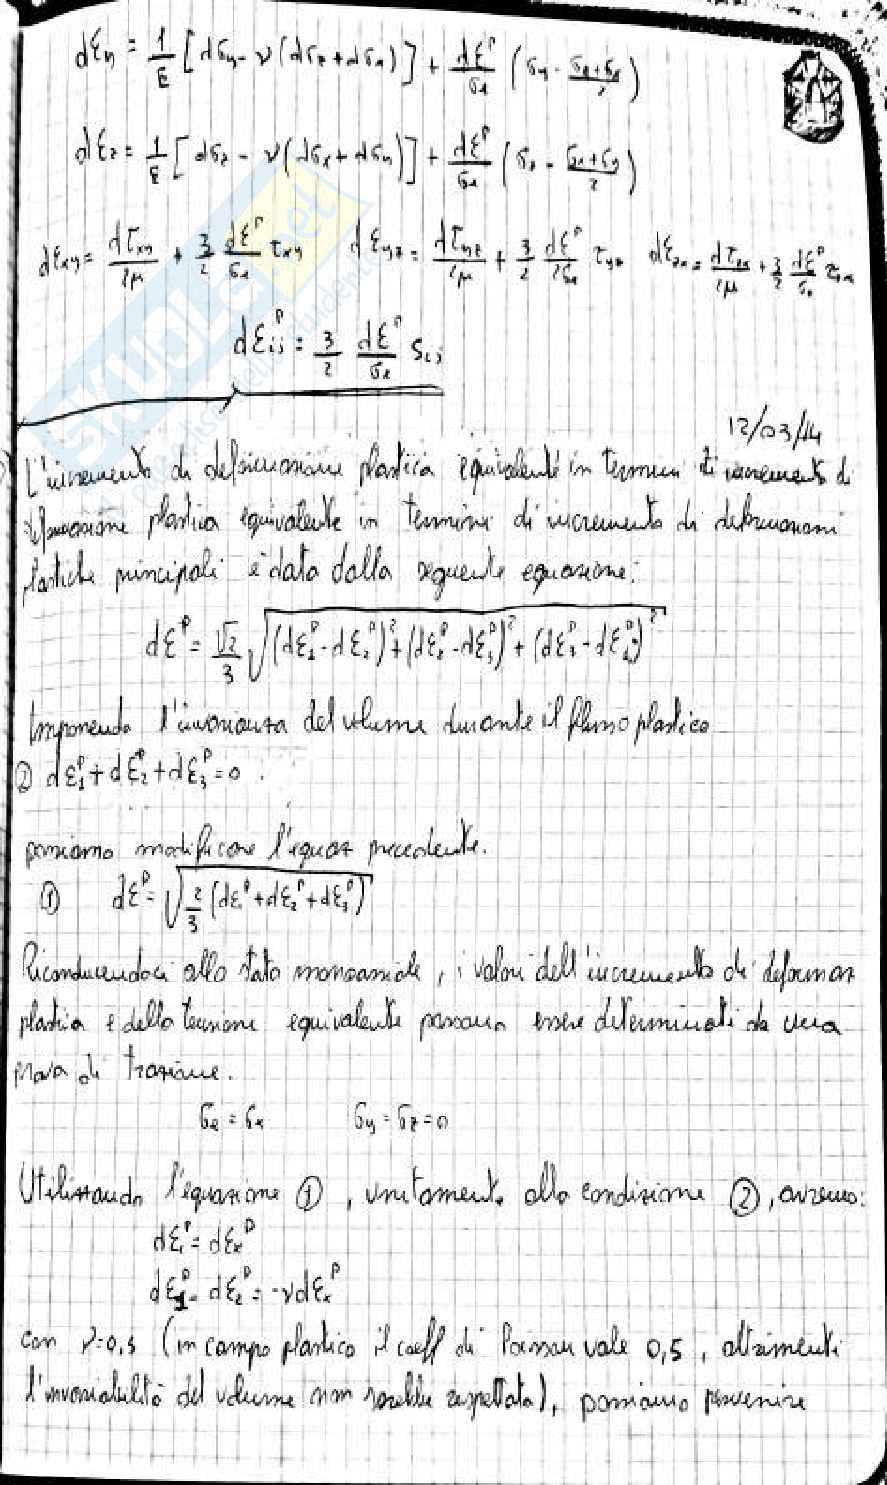 dεy = 1/E [dσy - ν(dσz + dσx)] + dε^p/σe (σy - (σz+σx)/2)
dεz = 1/E [dσz - ν(dσx + dσy)] + dε^p/σe (σz - (σx+σy)/2)
dεxy = dτxy/2μ + 3/2 dε^p/σe τxy dεyz = dτyz/2μ + 3/2 dε^p/σe τyz dεzx = dτzx/2μ + 3/2 dε^p/σe τzx
dεij^p = 3/2 dε^p/σe Sij
SKUOLA.net
12/03/14
L'incremento di deformazione plastica equivalente in termini di incremento di
deformazione plastica equivalente in termini di incremento di deformazioni
plastiche principali è data dalla seguente equazione:
dε^p = √2/3 √((dε1^p - dε2^p)² + (dε2^p - dε3^p)² + (dε3^p - dε1^p)²)
Imponendo l'invarianza del volume durante il flusso plastico
② dε1^p + dε2^p + dε3^p = 0.
possiamo modificare l'equaz precedente.
① dε^p = √(2/3 (dε1^p + dε2^p + dε3^p))
Riconducendoci allo stato monoassiale, i valori dell'incremento di deformaz
plastica e della tensione equivalente possono essere determinati da una
prova di trazione.
σe = σx σy = σz = 0
Utilizzando l'equazione ①, unitamente alla condizione ②, avremo:
dε1^p = dεx^p
dεy^p = dεz^p = -νdεx^p
con ν=0,5 (in campo plastico il coeff di Poisson vale 0,5, altrimenti
l'invariabilità del volume non sarebbe rispettata), possiamo pervenire